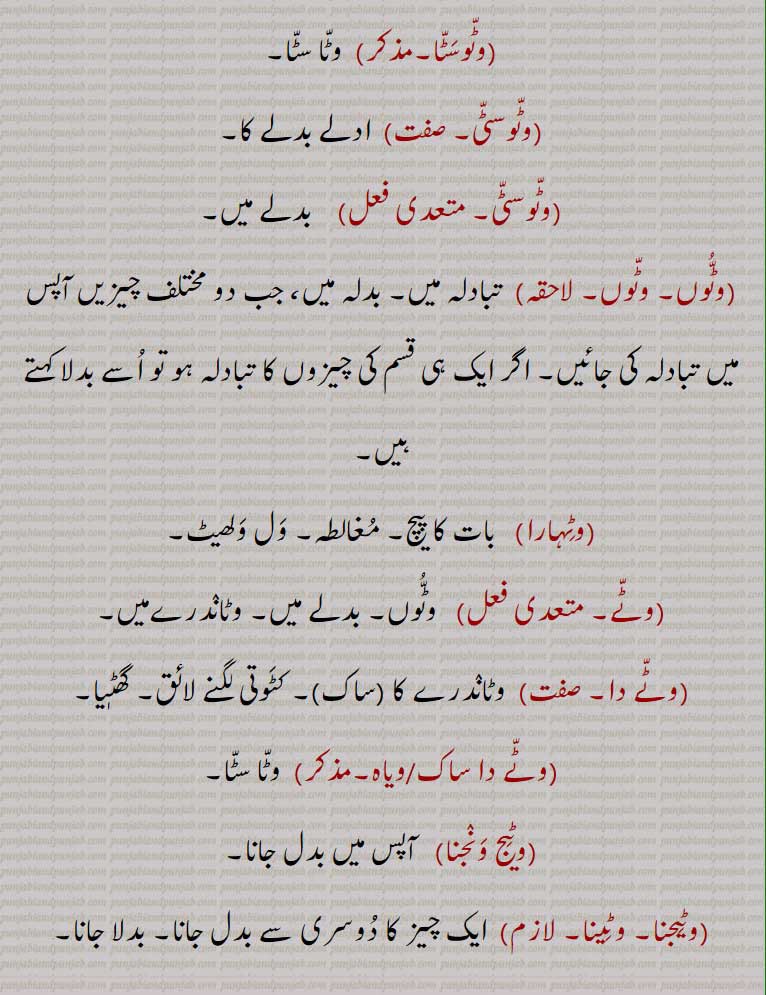 (وٹّوسَٹّا۔مذکر) وٹّا سٹّا۔
(وٹّوسٹّی۔ صفت) ادلے بدلے کا۔
(وٹّوسٹّی۔ متعدی فعل) بدلے میں۔
(وٹُّوں۔ وٹّوں۔ لاحقہ) تبادلہ میں۔ بدلہ میں، جب دو مختلف چیزیں آپس
میں تبادلہ کی جائیں۔ اگر ایک ہی قسم کی چیزوں کا تبادلہ ہو تو اُسے بدلا کہتے
ہیں۔
(وٹِہارا) بات کا پیچ۔ مُغالطہ۔ وَل وَلھیٹ۔
(وٹّے۔ متعدی فعل) وٹُّوں۔ بدلے میں۔ وٹاندرے میں۔
(وٹّے دا۔ صفت) وٹاندرے کا (ساک)۔ کٹَوتی لگنے لائق۔ گھٹیا۔
(وٹّے دا ساک/ویاہ۔مذکر) وٹّا سٹّا۔
(وٹِیج وَنجنا) آپس میں بدل جانا۔
(وٹیجنا۔ وٹِینا۔ لازم) ایک چیز کا دُوسری سے بدل جانا۔ بدلا جانا۔